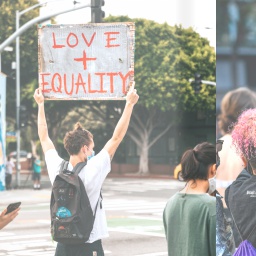 LOVE
+
EQUALITY